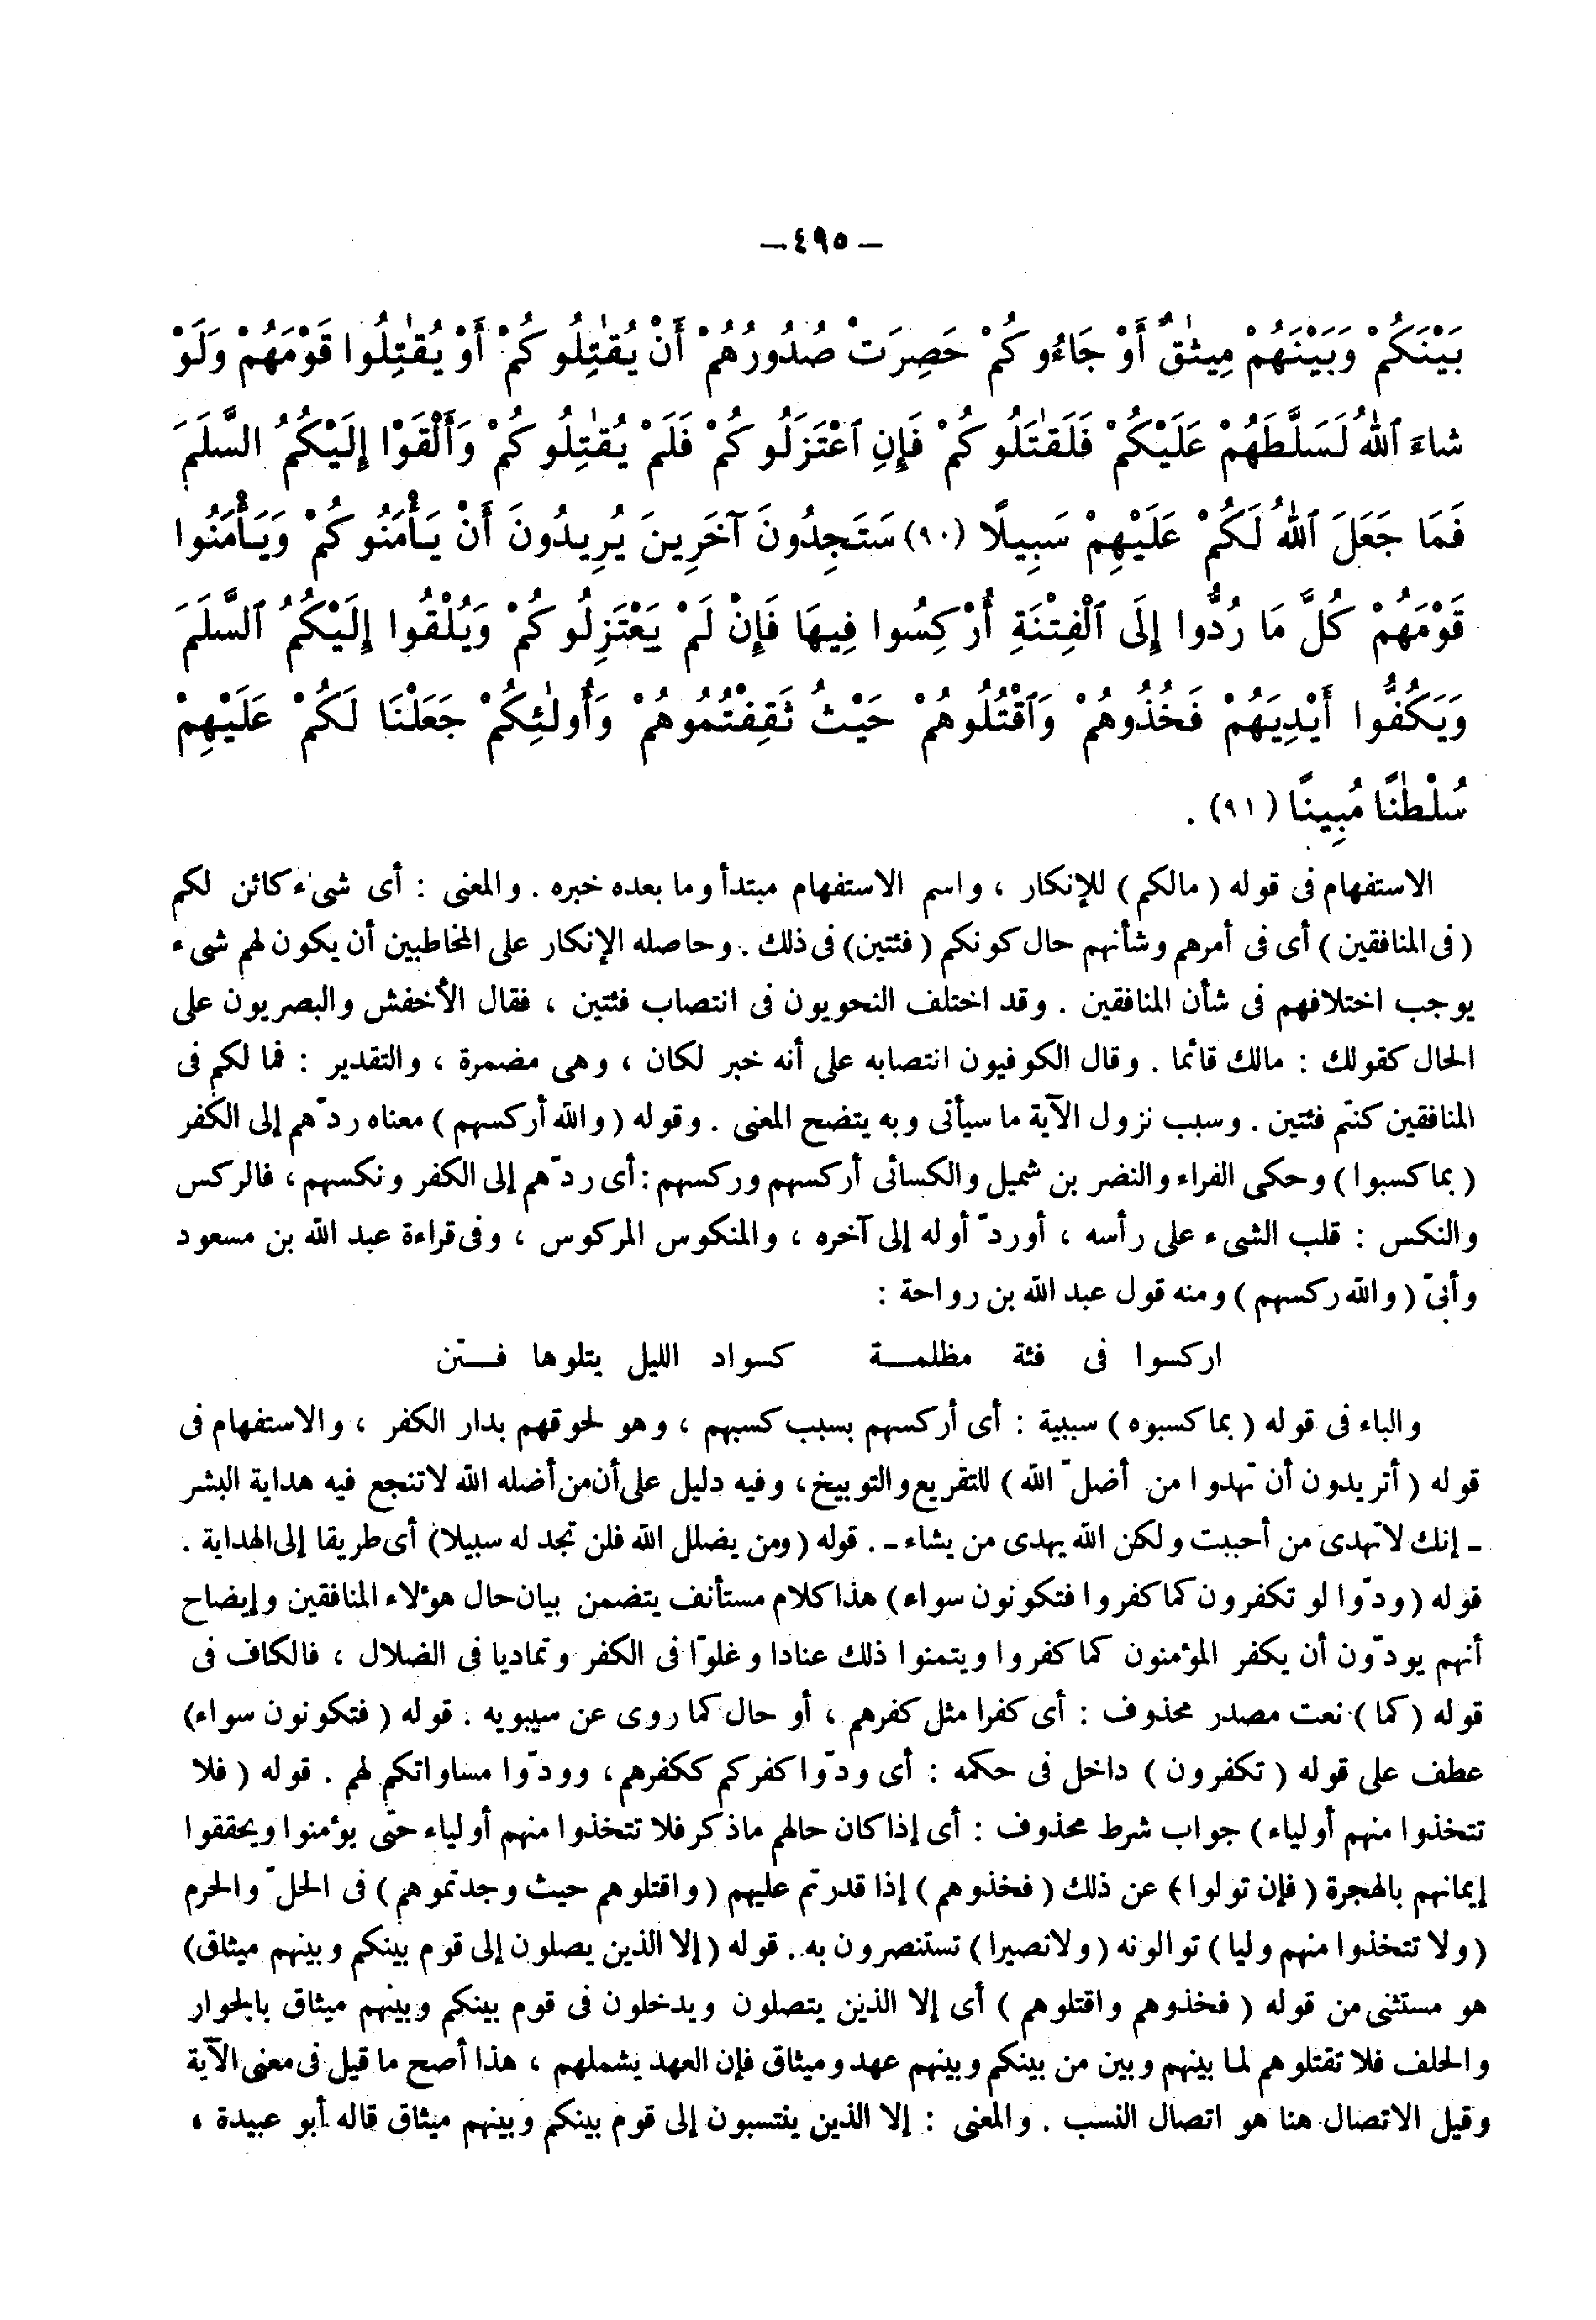 – ٤٩٥ –
بَيْنَكُمْ وَبَيْنَهُمْ مِيثٰقٌ أَوْ جَاءُوكُمْ حَصِرَتْ صُدُورُهُمْ أَنْ يُقٰتِلُوكُمْ أَوْ يُقٰتِلُوا قَوْمَهُمْ وَلَوْ
شاءَ ٱللهُ لَسَلَّطَهُمْ عَلَيْكُمْ فَلَقٰتَلُوكُمْ فَإِنِ ٱعْتَزَلُوكُمْ فَلَمْ يُقٰتِلُوكُمْ وَأَلْقَوْا إِلَيْكُمُ السَّلَمَ
فَمَا جَعَلَ ٱللهُ لَكُمْ عَلَيْهِمْ سَبِيلًا (٩٠) سَتَجِدُونَ آخَرِينَ يُرِيدُونَ أَنْ يَأْمَنُوكُمْ وَيَأْمَنُوا
قَوْمَهُمْ كُلَّ مَا رُدُّوا إِلَى ٱلْفِتْنَةِ أُرْكِسُوا فِيهَا فَإِنْ لَمْ يَعْتَزِلُوكُمْ وَيُلْقُوا إِلَيْكُمُ ٱلسَّلَمَ
وَيَكُفُّوا أَيْدِيَهُمْ فَخُذُوهُمْ وَٱقْتُلُوهُمْ حَيْثُ ثَقِفْتُمُوهُمْ وَأُولٰئِكُمْ جَعَلْنَا لَكُمْ عَلَيْهِمْ
سُلْطٰنًا مُبِينًا (٩١) .
الاستفهام فى قوله ( مالكم ) للإنكار ، واسم الاستفهام مبتدأ وما بعده خبره . والمعنى : أى شىء كائن لكم
( فى المنافقين ) أى فى أمرهم وشأنهم حال كونكم ( فئتين) فى ذلك . وحاصله الإنكار على المخاطبين أن يكون لهم شىء
يوجب اختلافهم فى شأن المنافقين . وقد اختلف النحويون فى انتصاب فئتين ، فقال الأخفش والبصريون على
الحال كقولك : مالك قائما . وقال الكوفيون انتصابه على أنه خبر لكان ، وهى مضمرة ، والتقدير : فما لكم فى
المنافقين كنتم فئتين . وسبب نزول الآية ما سيأتى وبه يتضح المعنى . وقوله ( والله أركسهم ) معناه ردّهم إلى الكفر
( بما كسبوا ) وحكى الفراء والنضر بن شميل والكسائى أركسهم وركسهم : أى ردّهم إلى الكفر ونكسهم ، فالركس
والنكس : قلب الشىء على رأسه ، أورد ّ أوله إلى آخره ، والمنكوس المركوس ، وفى قراءة عبد الله بن مسعود
وأبىّ ( والله ركسهم ) ومنه قول عبد الله بن رواحة :
اركسوا فى فئة مظلمـــة كسواد الليل يتلوها فــتن
والباء فى قوله ( بما كسبوه ) سببية : أى أركسهم بسبب كسبهم ، وهو لحوقهم بدار الكفر ، والاستفهام فى
قوله ( أتريدون أن تهدوا من أضلّ الله ) للتقريع والتوبيخ ، وفيه دليل على أن من أضله الله لا تنجع فيه هداية البشر
- إنك لا تهدى من أحببت ولكن الله يهدى من يشاء - . قوله ( ومن يضلل الله فلن تجد له سبيلا) أى طريقا إلى الهداية .
قوله ( ودّوا لو تكفرون كما كفروا فتكونون سواء) هذا كلام مستأنف يتضمن بيان حال هؤلاء المنافقين وإيضاح
أنهم يودّون أن يكفر المؤمنون كما كفروا ويتمنوا ذلك عنادا وغلوّا فى الكفر وتماديا فى الضلال ، فالكاف فى
قوله ( كما ) نعت مصدر محذوف : أى كفرا مثل كفرهم ، أو حال كما روى عن سيبويه . قوله ( فتكونون سواء)
عطف على قوله ( تكفرون ) داخل فى حكمه : أى ودّوا كفركم ككفرهم ، وودّوا مساواتكم لهم . قوله ( فلا
تتخذوا منهم أولياء ) جواب شرط محذوف : أى إذا كان حالهم ماذكر فلا تتخذوا منهم أولياء حتى يؤمنوا ويحققوا
إيمانهم بالهجرة ( فإن تولوا ) عن ذلك ( فخذوهم ) إذا قدرتم عليهم ( واقتلوهم حيث وجدتموهم ) فى الحلّ والحرم
( ولا تتخذوا منهم وليا ) توالونه ( ولا نصيرا ) تستنصرون به . قوله ( إلا الذين يصلون إلى قوم بينكم وبينهم ميثاق)
هو مستثنى من قوله ( فخذوهم واقتلوهم ) أى إلا الذين يتصلون ويدخلون فى قوم بينكم وبينهم ميثاق بالجوار
والحلف فلا تقتلوهم لما بينهم وبين من بينكم وبينهم عهد وميثاق فإن العهد يشملهم ، هذا أصح ما قيل فى معنى الآية
وقيل الاتصال هنا هو اتصال النسب . والمعنى : إلا الذين ينتسبون إلى قوم بينكم وبينهم ميثاق قاله أبو عبيدة ،